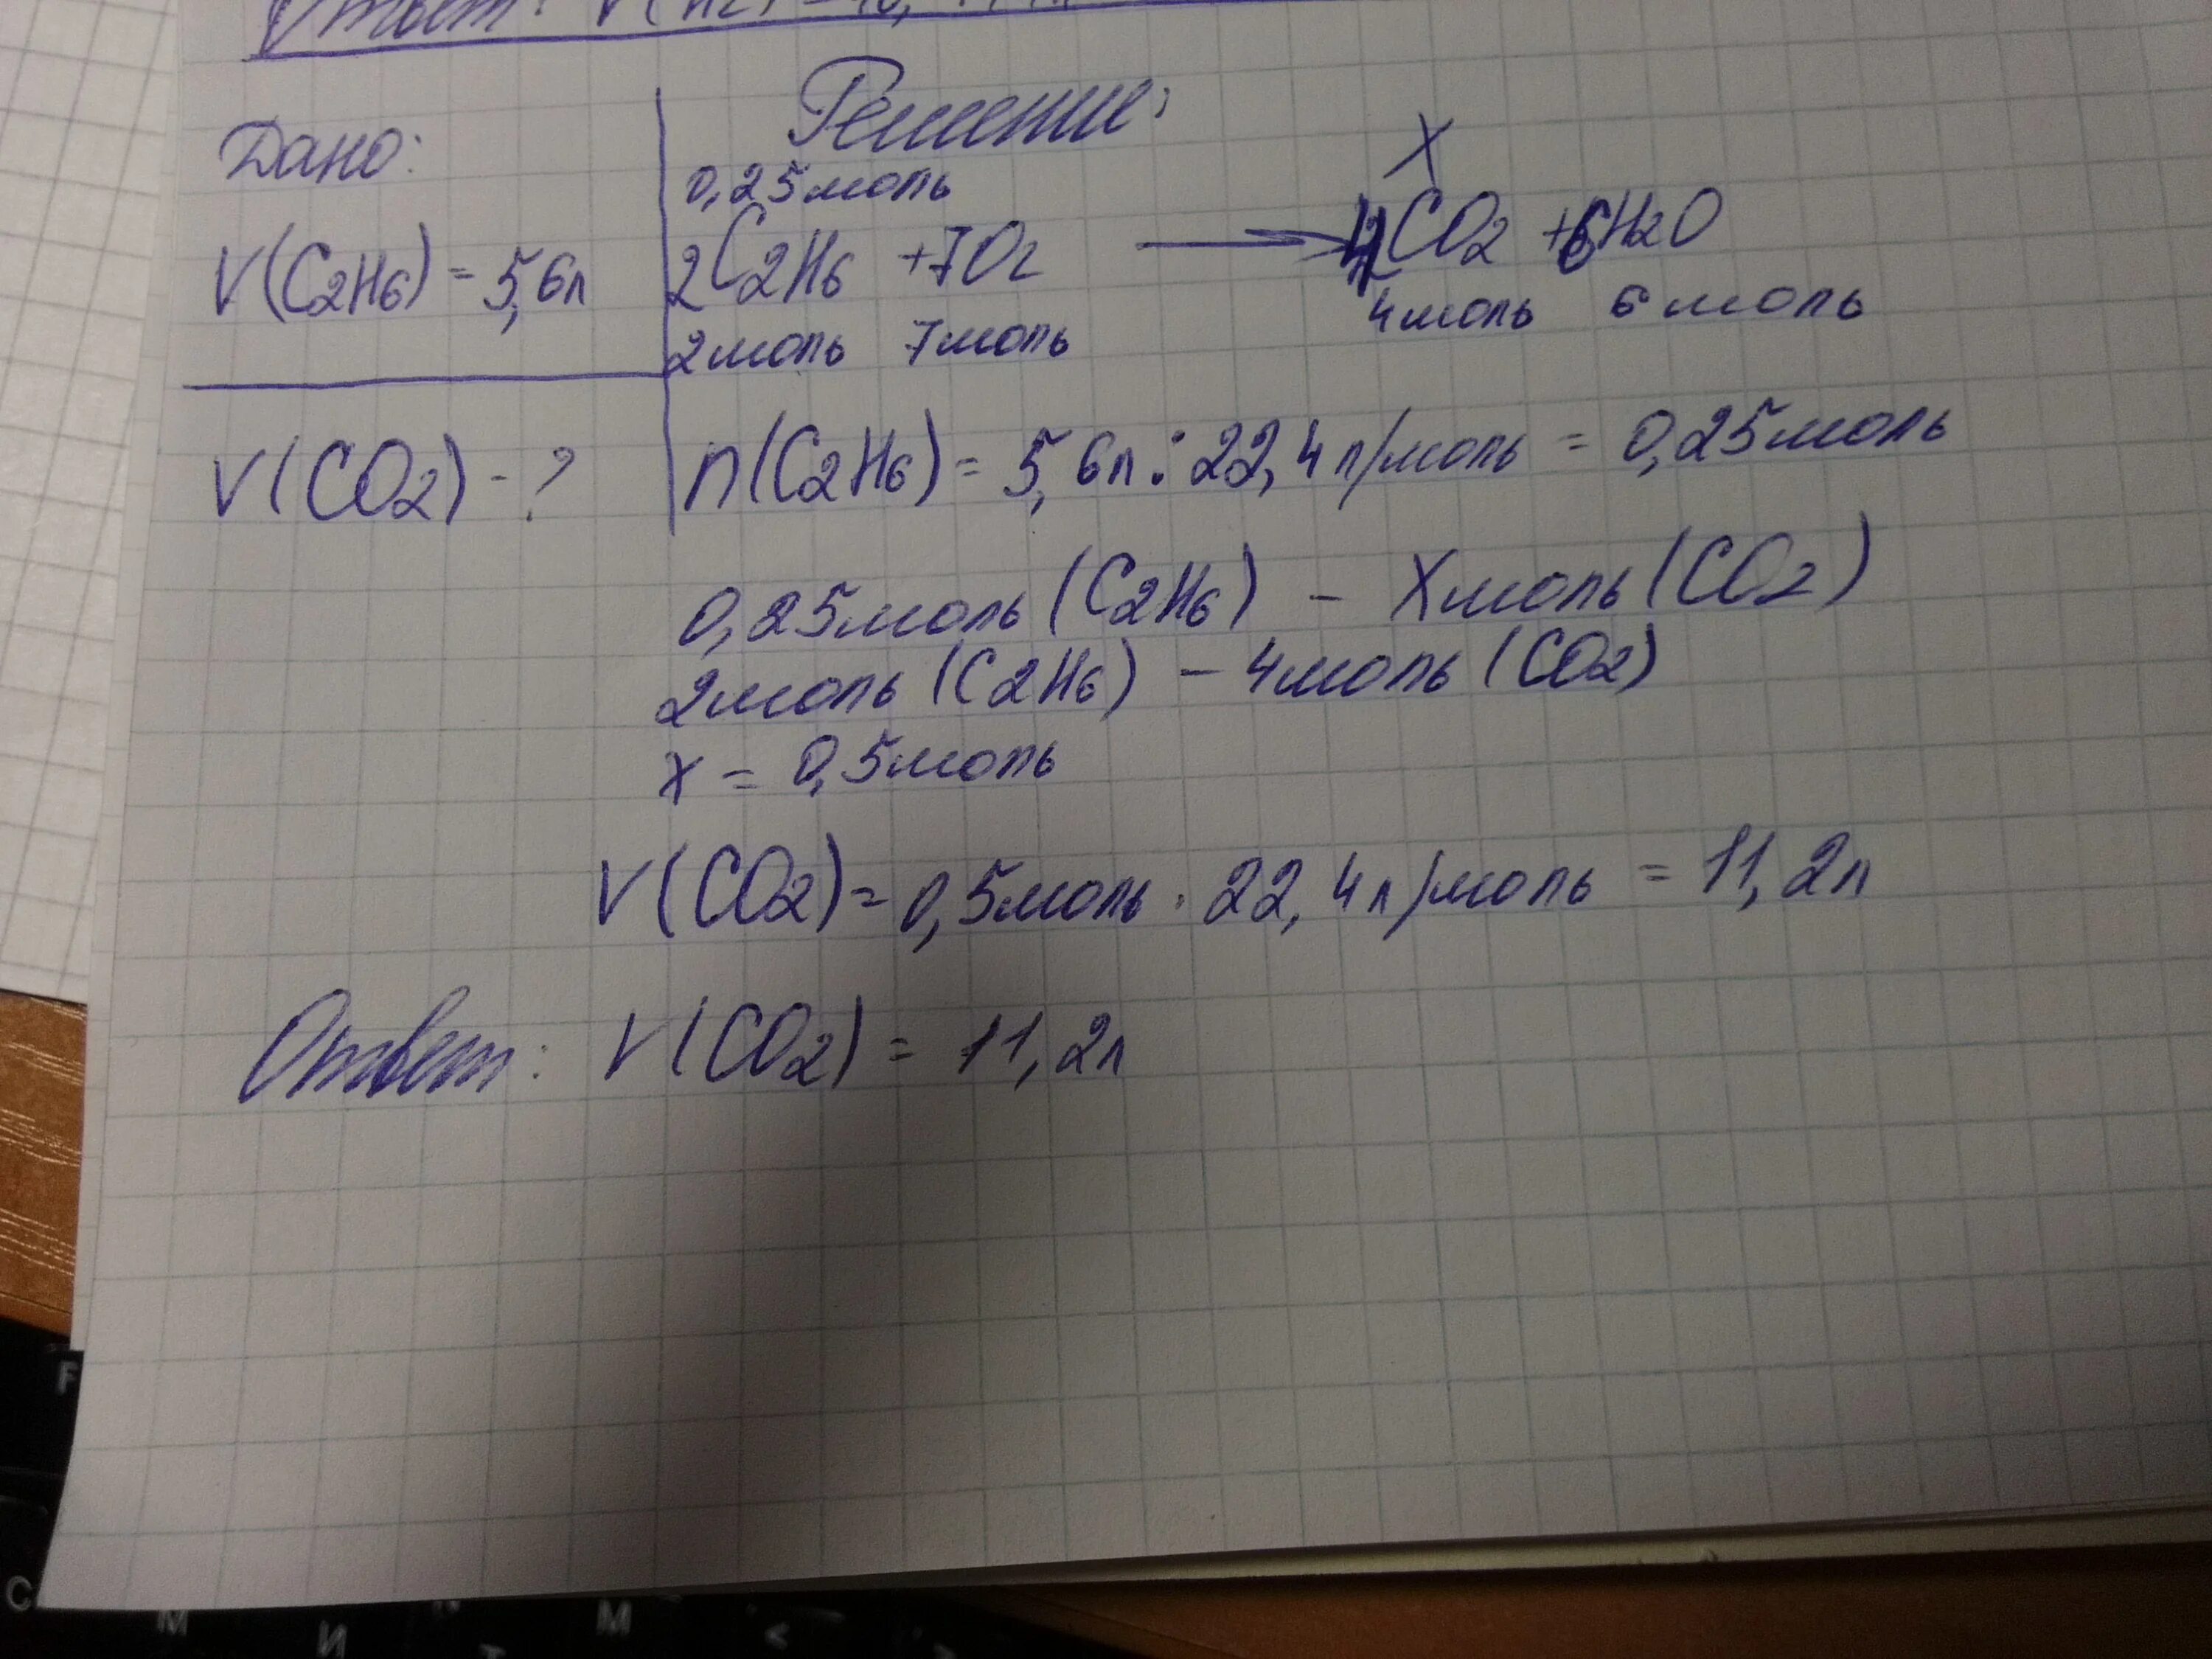 Ответ: V(
Решение:
Дано:
0,25моль
X
V(C2H6) = 5,6л
2C2H6 +7O2 → 4CO2 +6H2O
2моль 7моль 4моль 6моль
V(CO2) - ?
n(C2H6) = 5,6л : 22,4л/моль = 0,25моль
0,25моль (C2H6) - Xмоль (CO2)
2моль (C2H6) - 4моль (CO2)
x = 0,5моль
V(CO2) = 0,5моль · 22,4л/моль = 11,2л
Ответ: V(CO2) = 11,2л
F
C
М
И
М
<